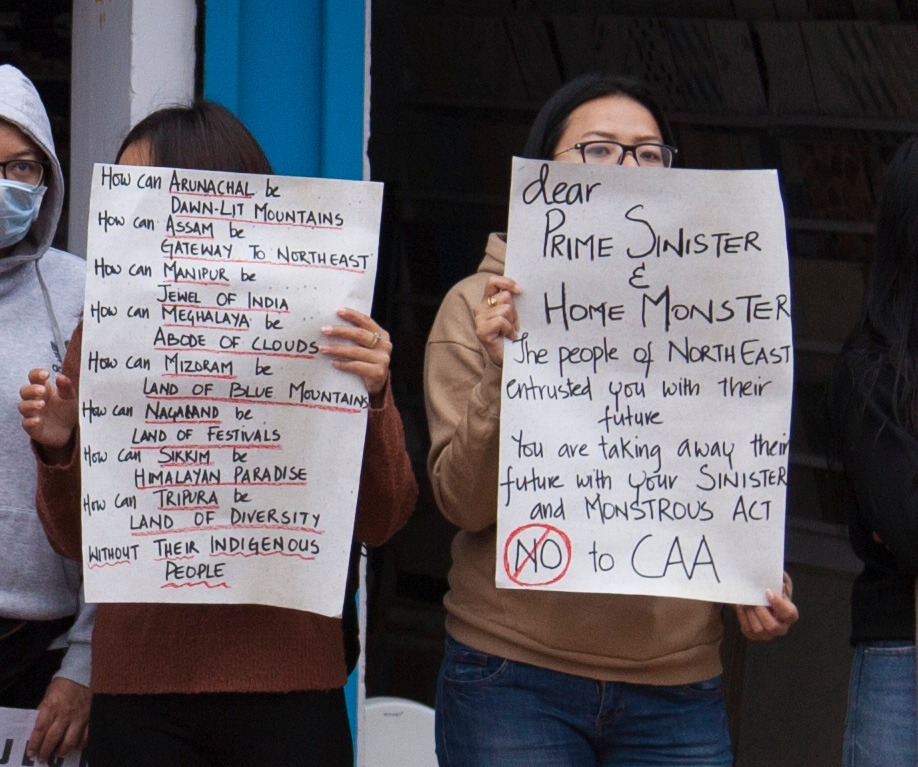 How can ARUNACHAL be
DAWN-LIT MOUNTAINS
How can ASSAM be
GATEWAY TO NORTHEAST
How can MANIPUR be
JEWEL OF INDIA
How can MEGHALAYA be
ABODE OF CLOUDS
How can MIZORAM be
LAND OF BLUE MOUNTAINS
How can NAGALAND be
LAND OF FESTIVALS
How can SIKKIM be
HIMALAYAN PARADISE
How can TRIPURA be
LAND OF DIVERSITY
WITHOUT THEIR INDIGENOUS
PEOPLE
dear
PRIME SINISTER
&
HOME MONSTER
The people of NORTH EAST
entrusted you with their
future
You are taking away their
future with your SINISTER
and MONSTROUS ACT
NO to CAA